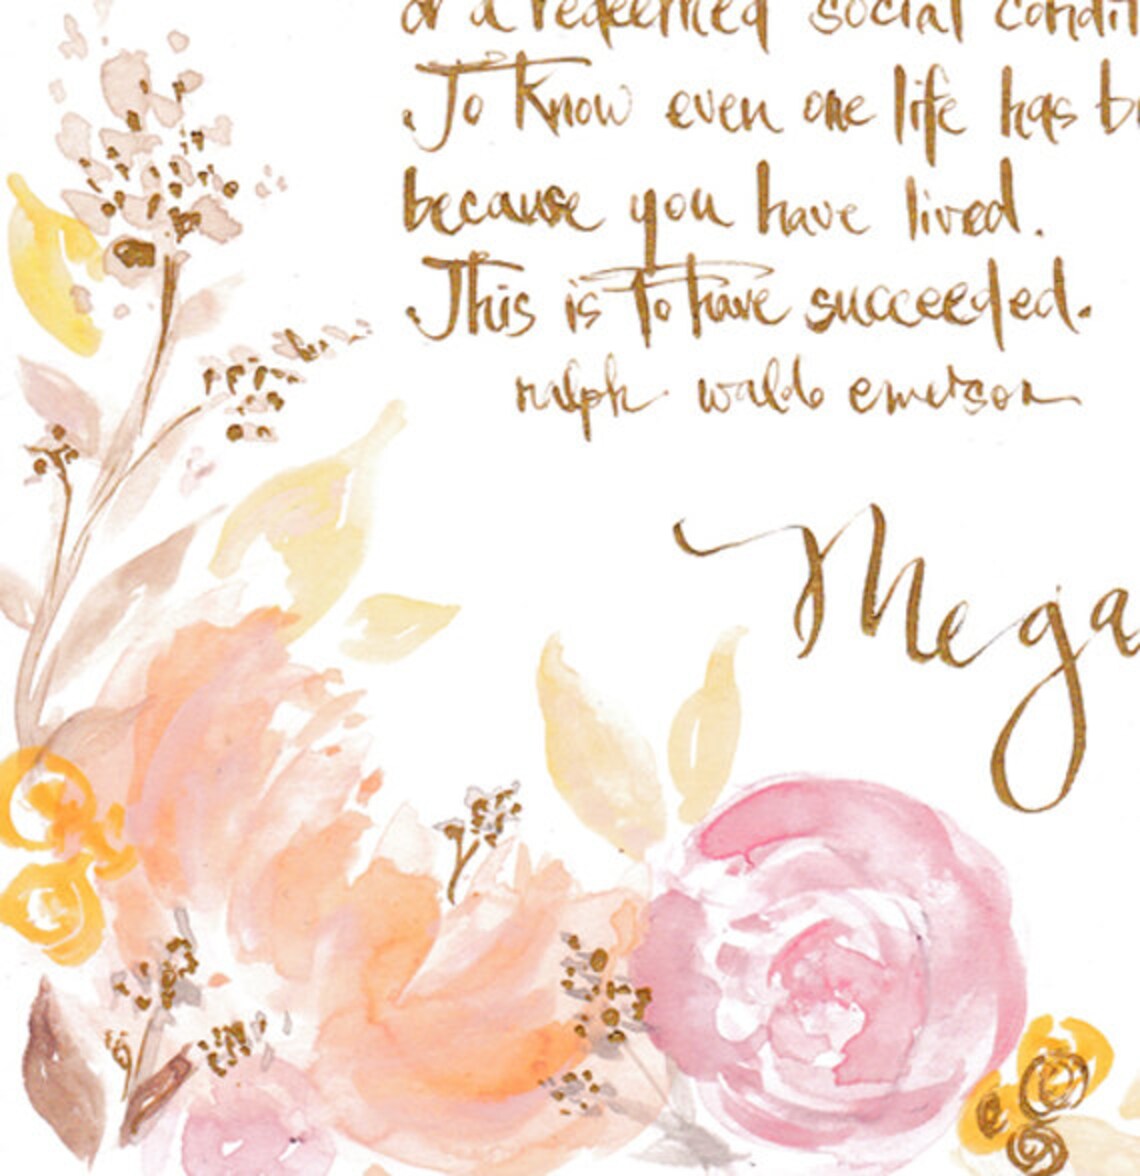 or a redeemed social condit
To Know even one life has br
because you have lived.
This is to have succeeded.
ralph waldo emerson
Mega